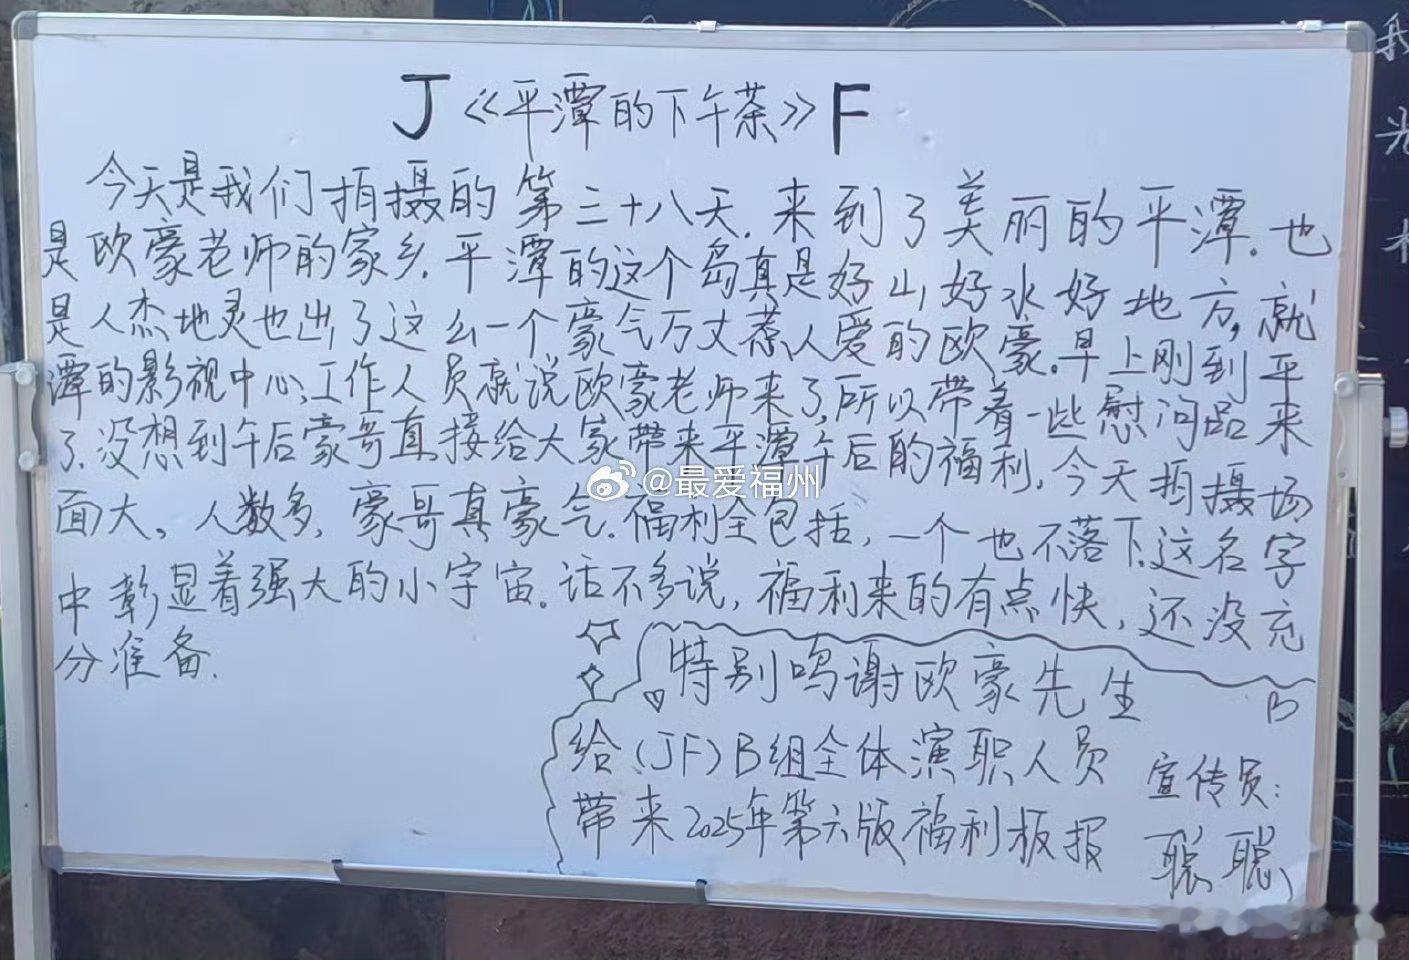 J《平潭的下午茶》F
今天是我们拍摄的第三十八天.来到了美丽的平潭.也
是欧豪老师的家乡.平潭的这个岛真是好山好水好地方,就
是人杰地灵也出了这么一个豪气万丈惹人爱的欧豪.早上刚到平
潭的影视中心,工作人员就说欧豪老师来了,所以带着一些慰问品来
了.没想到午后豪哥直接给大家带来平潭午后的福利.今天拍摄场
面大。人数多,豪哥真豪气.福利全包括,一个也不落下.这名字
中彰显着强大的小宇宙.话不多说,福利来的有点快,还没充
分准备.
特别鸣谢欧豪先生
给(JF)B组全体演职人员
带来2025年第六版福利板报
B
宣传员:
聪聪
@最爱福州
我
光